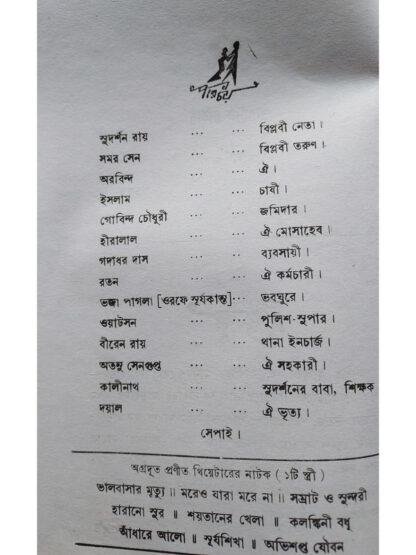 পরিচয়
সুদর্শন রায় ... ... বিপ্লবী নেতা।
সমর সেন ... ... বিপ্লবী তরুণ।
অরবিন্দ ... ... ঐ।
ইসলাম ... ... চাষী।
গোবিন্দ চৌধুরী ... ... জমিদার।
হীরালাল ... ... ঐ মোসাহেব।
গদাধর দাস ... ... ব্যবসায়ী।
রতন ... ... ঐ কর্মচারী।
ভজা পাগলা [ওরফে সূর্যকান্ত] ... ভবঘুরে।
ওয়াটসন ... ... পুলিশ-সুপার।
বীরেন রায় ... ... থানা ইনচার্জ।
অতনু সেনগুপ্ত ... ... ঐ সহকারী।
কালীনাথ ... ... সুদর্শনের বাবা, শিক্ষক
দয়াল ... ... ঐ ভৃত্য।
সেপাই।
অগ্রদূত প্রণীত থিয়েটারের নাটক (১টি স্ত্রী)
ভালবাসার মৃত্যু॥ মরেও যারা মরে না॥ সম্রাট ও সুন্দরী
হারানো সুর ॥ শয়তানের খেলা ॥ কলঙ্কিনী বধূ
আঁধারে আলো ॥ সূর্যশিখা ॥ অভিশপ্ত যৌবন